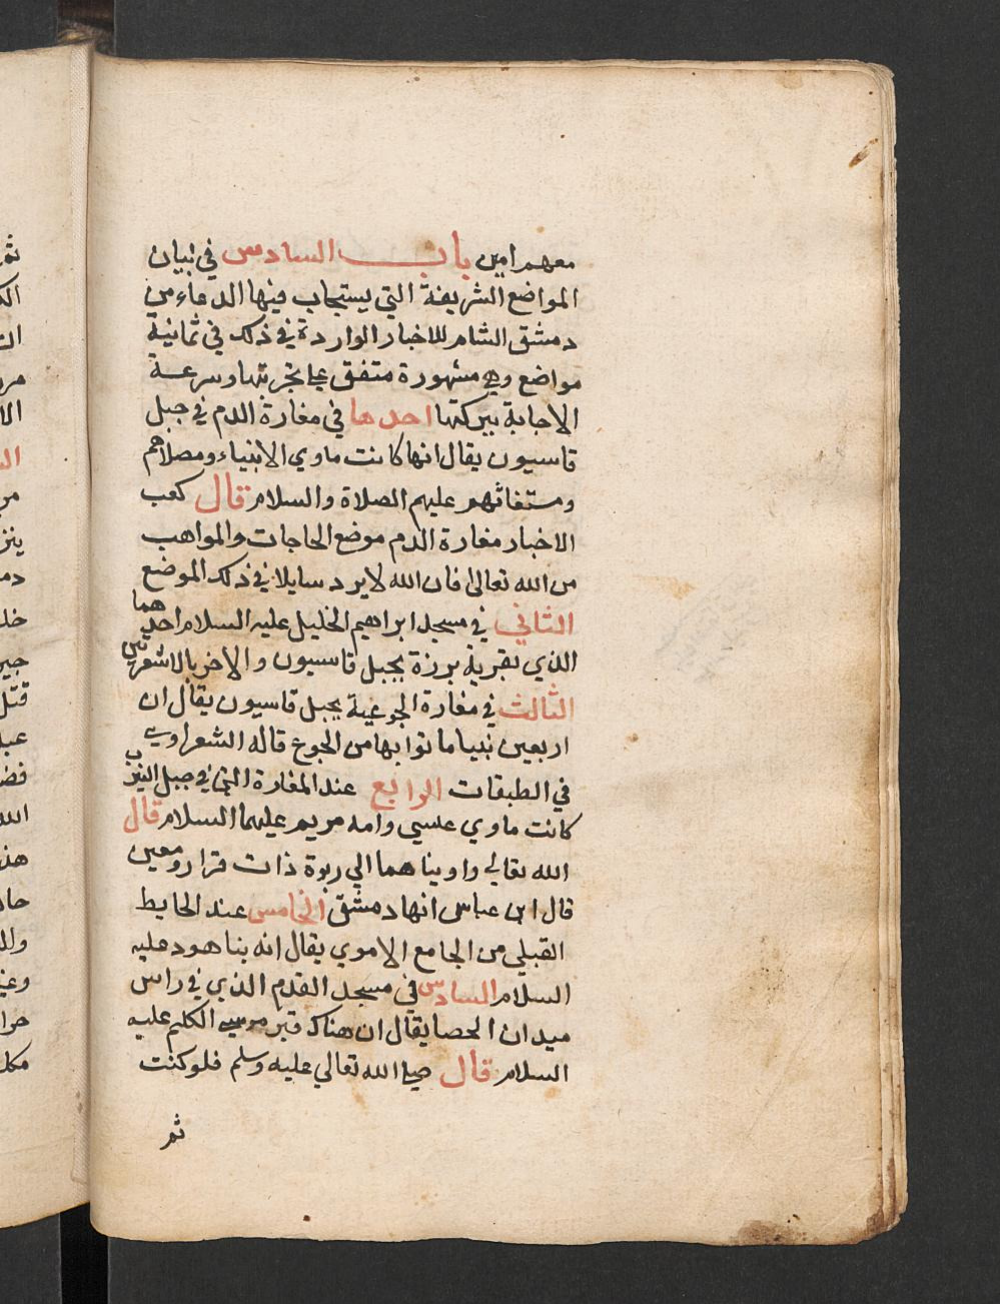 معهم امين باب السادس في بيان
المواضع الشريفة التي يستجاب فيها الدعاء من
دمشق الشام للاخبار الواردة في ذلك في ثمانية
مواضع وهي مشهورة متفق علي تجربتها وسرعة
الاجابة ببركتها احدها في مغارة الدم في جبل
قاسيون يقال انها كانت ماوي الانبياء ومصلاهم
ومستغاثهم عليهم الصلاة والسلام قال كعب
الاخبار مغارة الدم موضع الحاجات والمواهب
من الله تعالى فان الله لايرد سايلا في ذلك الموضع
الثاني في مسجد ابراهيم الخليل عليه السلام احدهما
الذي بقرية برزة بجبل قاسيون والاخر بالاشعريين
الثالث في مغارة الجوعية بجبل قاسيون يقال ان
اربعين نبيا ماتوا بها من الجوع قاله الشعراوي
في الطبقات الرابع عند المغارة التي في جبل النيرب
كانت ماوي عيسي وامه مريم عليهما السلام قال
الله تعالي واويناهما الي ربوة ذات قرار ومعين
قال ابن عباس انها دمشق الخامس عند الحايط
القبلي من الجامع الاموي يقال انه بنا هود عليه
السلام السادس في مسجد القدم الذي في راس
ميدان الحصا يقال ان هناك قبر موسي الكليم عليه
السلام قال صلي الله تعالي عليه وسلم فلو كنت
ثم
ثم